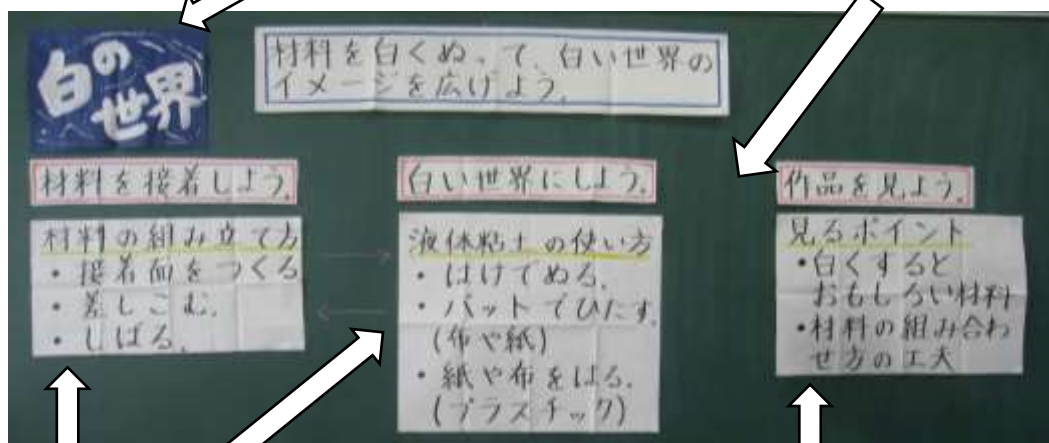 白の
世界
材料を白くぬって、白い世界の
イメージを広げよう。
材料を接着しよう。
材料の組み立て方
・接着面をつくる
・差しこむ。
・しばる。
白い世界にしよう。
液体粘土の使い方
・はけでぬる。
・バットでひたす。
(布や紙)
・紙や布をはる。
(プラスチック)
作品を見よう。
見るポイント
・白くすると
おもしろい材料
・材料の組み合わ
せ方の工夫